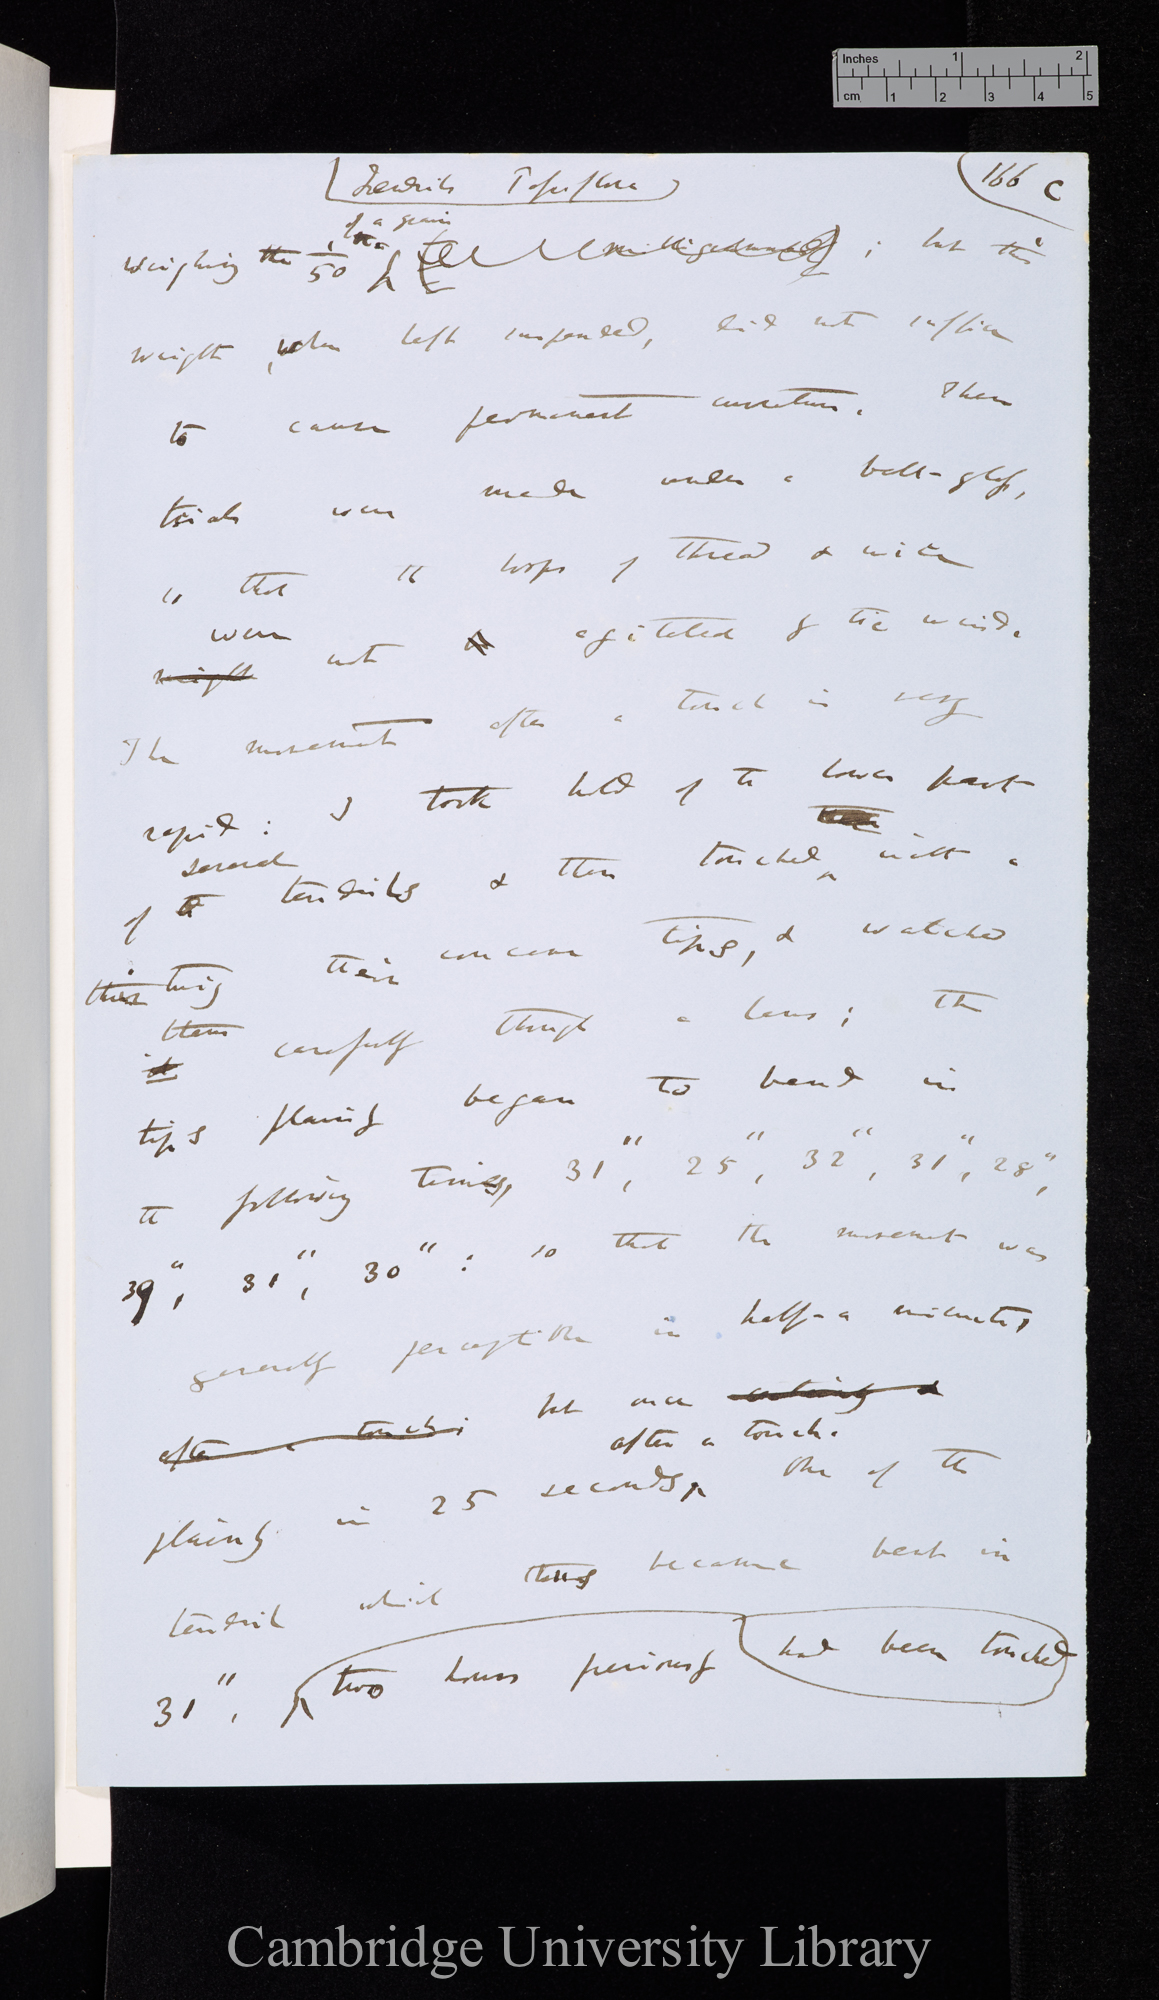 Inches 1 2
cm 1 2 3 4 5
Tendrils Passiflora
166 c
of a grain
weighing the 1/50 milligrammes ; but this
weight, when left suspended, did not suffice
to cause permanent curvature. These
trials were made under a bell-glass,
so that the loops of thread & wire
were
might not agitated by the wind.
The movement after a touch is very
rapid: I took hold of the lower part
several
of the tendrils & then touched with a
thin twig their concave tips, & watched
them
it carefully through a lens; the
tips plainly began to bend in
the following times, 31", 25", 32", 31", 28",
39", 31", 30": so that the movement was
generally perceptible in half-a minute,
after a touch; but once
after a touch.
plainly in 25 seconds, One of the
tendrils which thus became bent in
31", two hours previously had been touched
Cambridge University Library